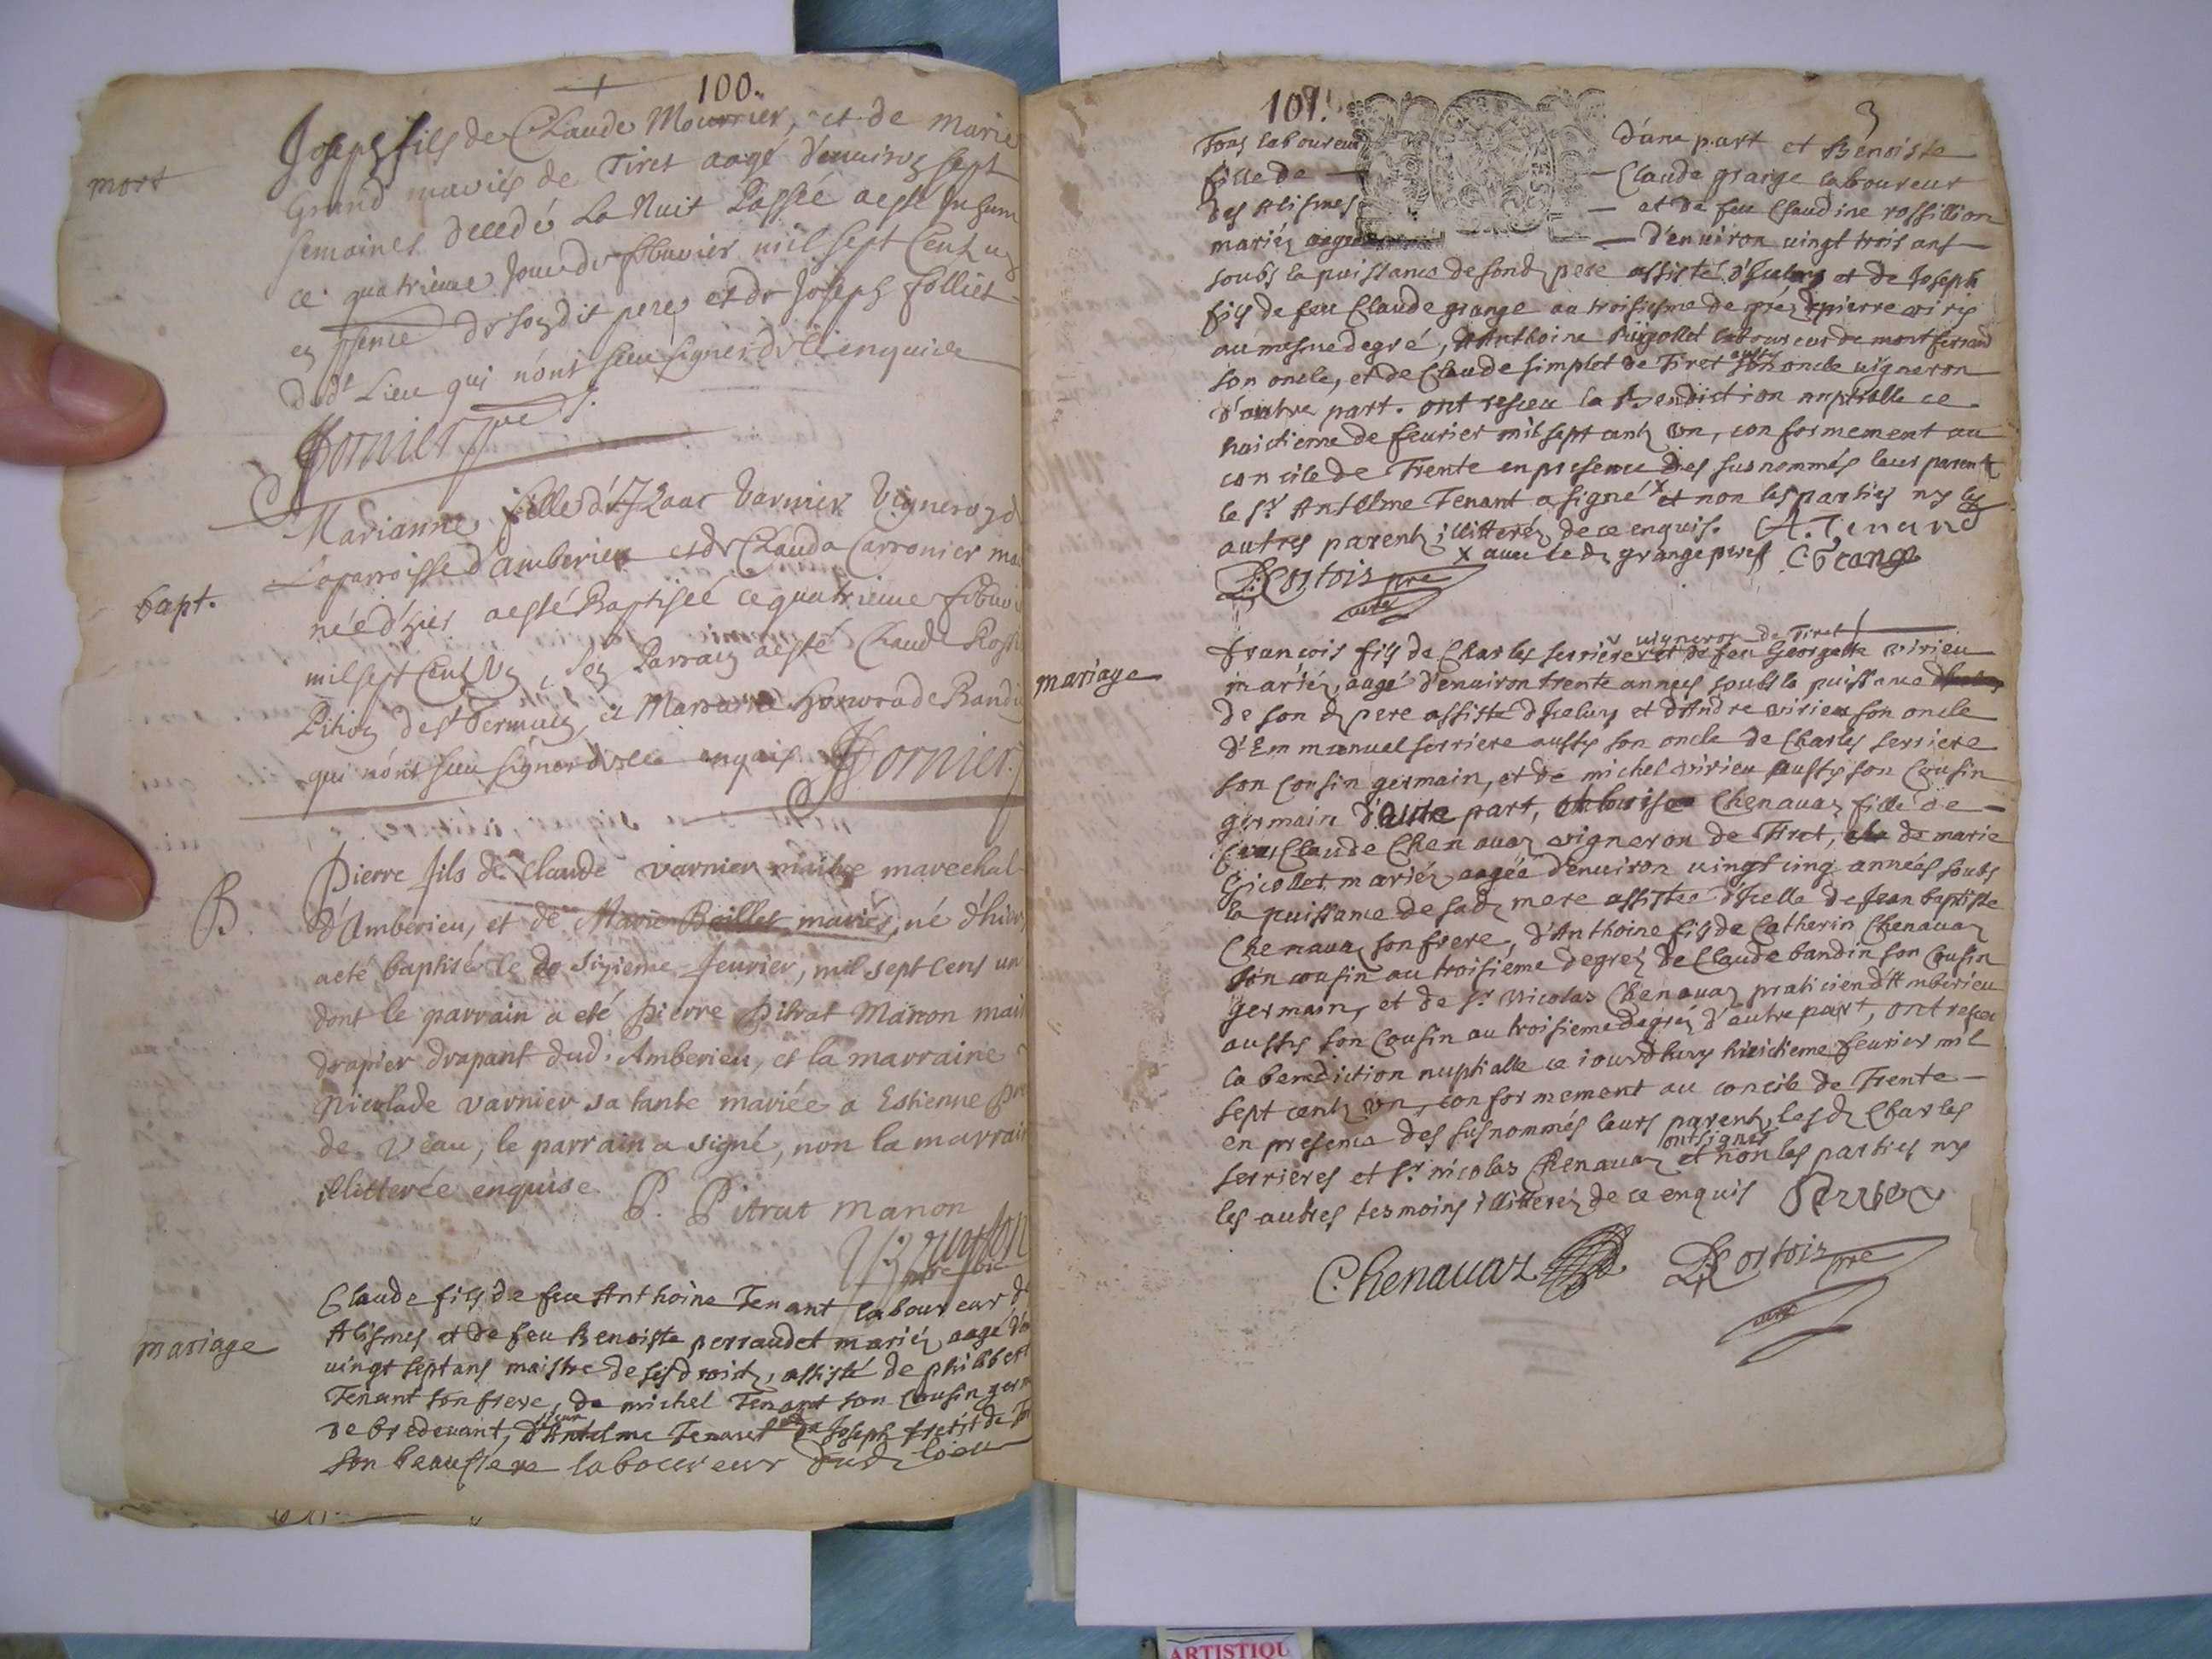 100.
mort
Joseph fils de Claude Mournier, et de Marie
Grand mariés de Tiret aagé d'environ sept
semaines decedé La Nuit Passée aesté Inhum
ce quatrieme Jour de feburier mil sept Cent un
en psence de son dit pere et de Joseph folliet
dud.t Lieu qui n'ont sceu signer de ce enquis
fornier pre
bapt.
Marianne fille d'Izaac Varnier Vigneron d
Laparroisse d'amberieu et de Clauda Carronier mar
née d'hier aesté Baptisée ce quatrieme febur
mil sept Cent Un, son Parrain aesté Claude
Pithon de st Germain, et Marraine de
qui n'ont sceu signer de ce enquis fornier
B.
Pierre fils de Claude Varnier maitre marechal
d'Amberieu, et de Marie Baillet mariés, né d'hier
a eté baptisé le sixieme feurier, mil sept cens un
dont le parrain a eté Pierre Pitrat Manon mait
drapier drapant dud. Amberieu, et la marraine
Nicolade varnier sa tante mariée a Estienne
de Veau, le parrain a signé, non la marrain
illitterée enquise. P. Pitrat manon
mariage
Claude fils de feu Anthoine Tenant laboureur d
Alismes et de feu Benoiste perraudet mariez aagé d'en
vingt sept ans maistre de ses droictz, assisté de philibert
Tenant son frere, de michel Tenant son Cousin germ
de bredevant, d'Antelme Tenant de Joseph
son beaufrere laboureur dud. lieu
101.
3
Tous laboureurs d'une part et Benoiste
fille de — Claude grange laboureur
des Alismes — et de feu Claudine rossillion
mariez aagée — d'environ vingt trois ans
soubs la puissance de sond. pere assistée d'Iceluy et de Joseph
fils de feu Claude grange au troisiesme de grez de pierre
au mesme degré, d'Anthoine laboureur de montferrand
son oncle, et de Claude simplet de Tiret aussy son oncle vigneron
d'autre part. ont resceu la Benediction nuptialle ce
huictieme de feurier mil sept centz un, conformement au
concile de Trente en presence des susnommés leurs parentz
le sr Antelme Tenant a signé x et non les parties ny les
autres parentz illitterez de ce enquis. A. Tenand
x avec led. grange pere C Grange
D: Cortois pre
curé
mariage
vigneron de Tiret
françois fils de Charles serriere et de feu Georgette virieu
mariez, aagé d'environ trente annees soubs la puissance
de son d. pere assisté d'Iceluy et d'Andre virieu son oncle
d'Emmanuel serriere aussy son oncle de Charles serriere
son Cousin germain, et de michel virieu aussy son Cousin
germain d'une part, Chenavaz fille de
feu Claude Chenavaz vigneron de Tiret, de marie
Gicollet mariez aagée d'environ vingt cinq années soubs
la puissance de sad. mere assistée d'Icelle de Jean baptiste
Chenavaz son frere, d'Anthoine fils de Catherin Chenavaz
son cousin au troisieme degrez de Claude bandin son Cousin
germain, et de sr Nicolas Chenavaz praticien d'Amberieu
aussy son Cousin au troisieme degrez d'autre part, ont resceu
la benediction nuptialle ce iourd'huy huictieme feurier mil
sept centz un, conformement au concile de Trente
en presence des susnommés leurs parentz, lesd. Charles
serrieres et sr. nicolas Chenavaz ont signés et non les parties ny
les autres tesmoins illitterez de ce enquis
Chenavaz D: Cortois pre
curé
ARTISTIQU